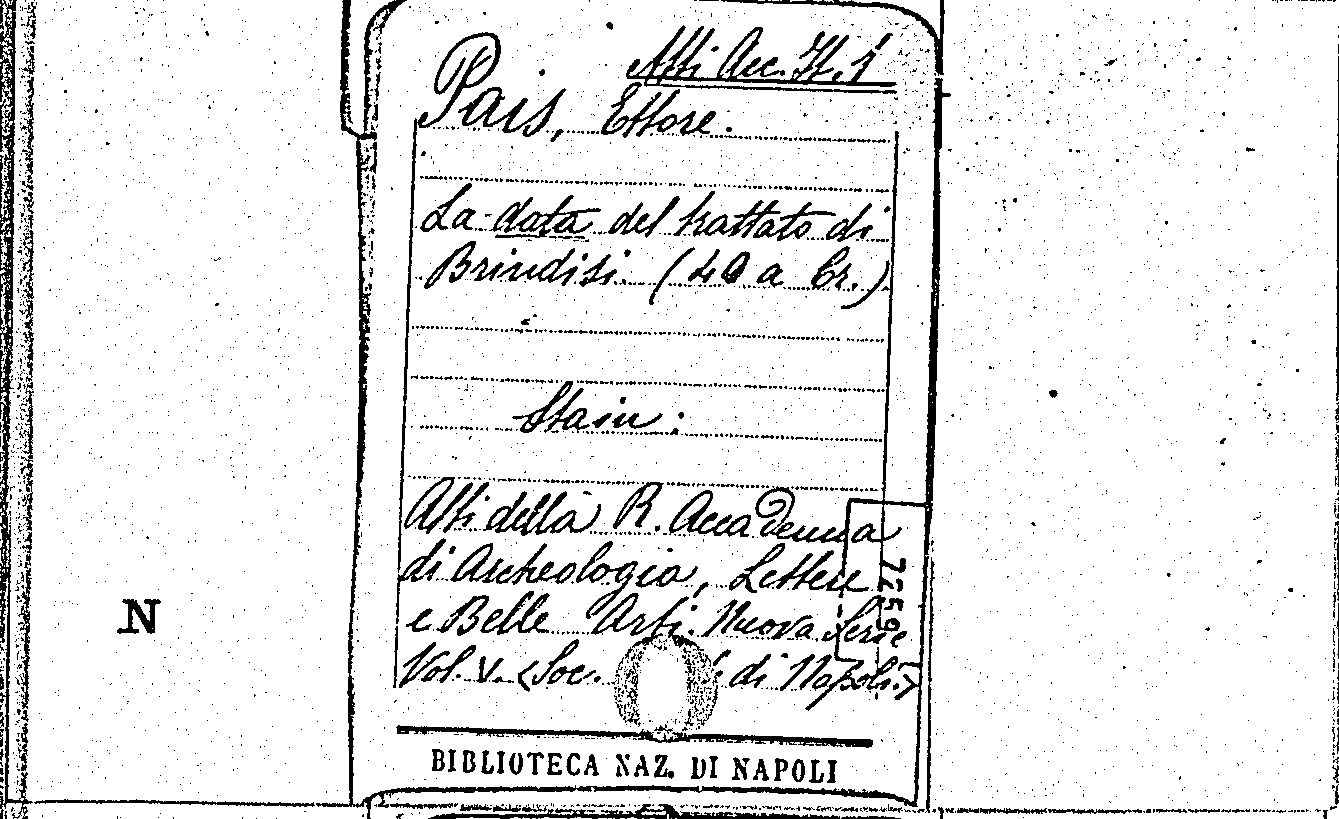 Atti Acc. It. 1
Pais, Ettore.
La data del trattato di
Brindisi. (40 a Cr.)
Stain:
Atti della R. Accademia
di Archeologia, Lettere
e Belle Arti. Nuova Serie
Vol. V. (Soc. di Napoli.)
N
BIBLIOTECA NAZ. DI NAPOLI